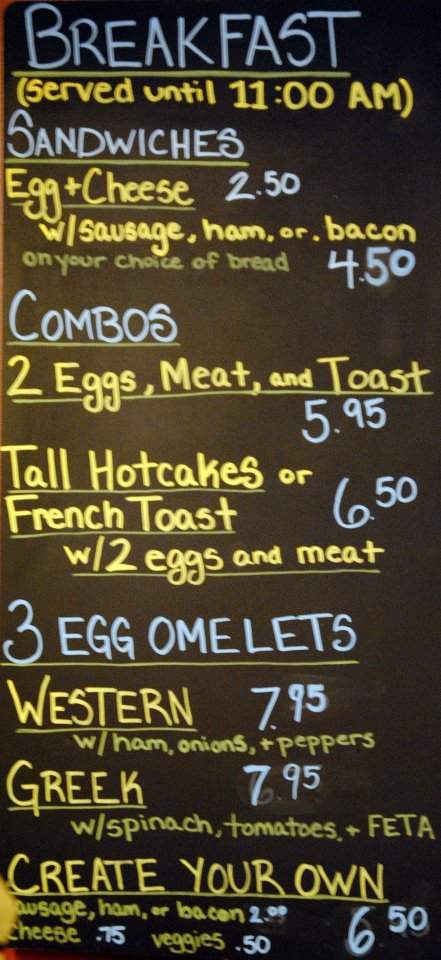 BREAKFAST
(Served until 11:00 AM)
SANDWICHES
Egg + Cheese 2.50
w/sausage, ham, or. bacon
on your choice of bread 4.50
COMBOS
2 Eggs, Meat, and Toast
5.95
Tall Hotcakes or
French Toast 6.50
w/2 eggs and meat
3 EGG OMELETS
WESTERN 7.95
w/ham, onions, + peppers
GREEK 7.95
w/spinach, tomatoes, + FETA
CREATE YOUR OWN
sausage, ham, or bacon 2.00
cheese .75 veggies .50 6 50